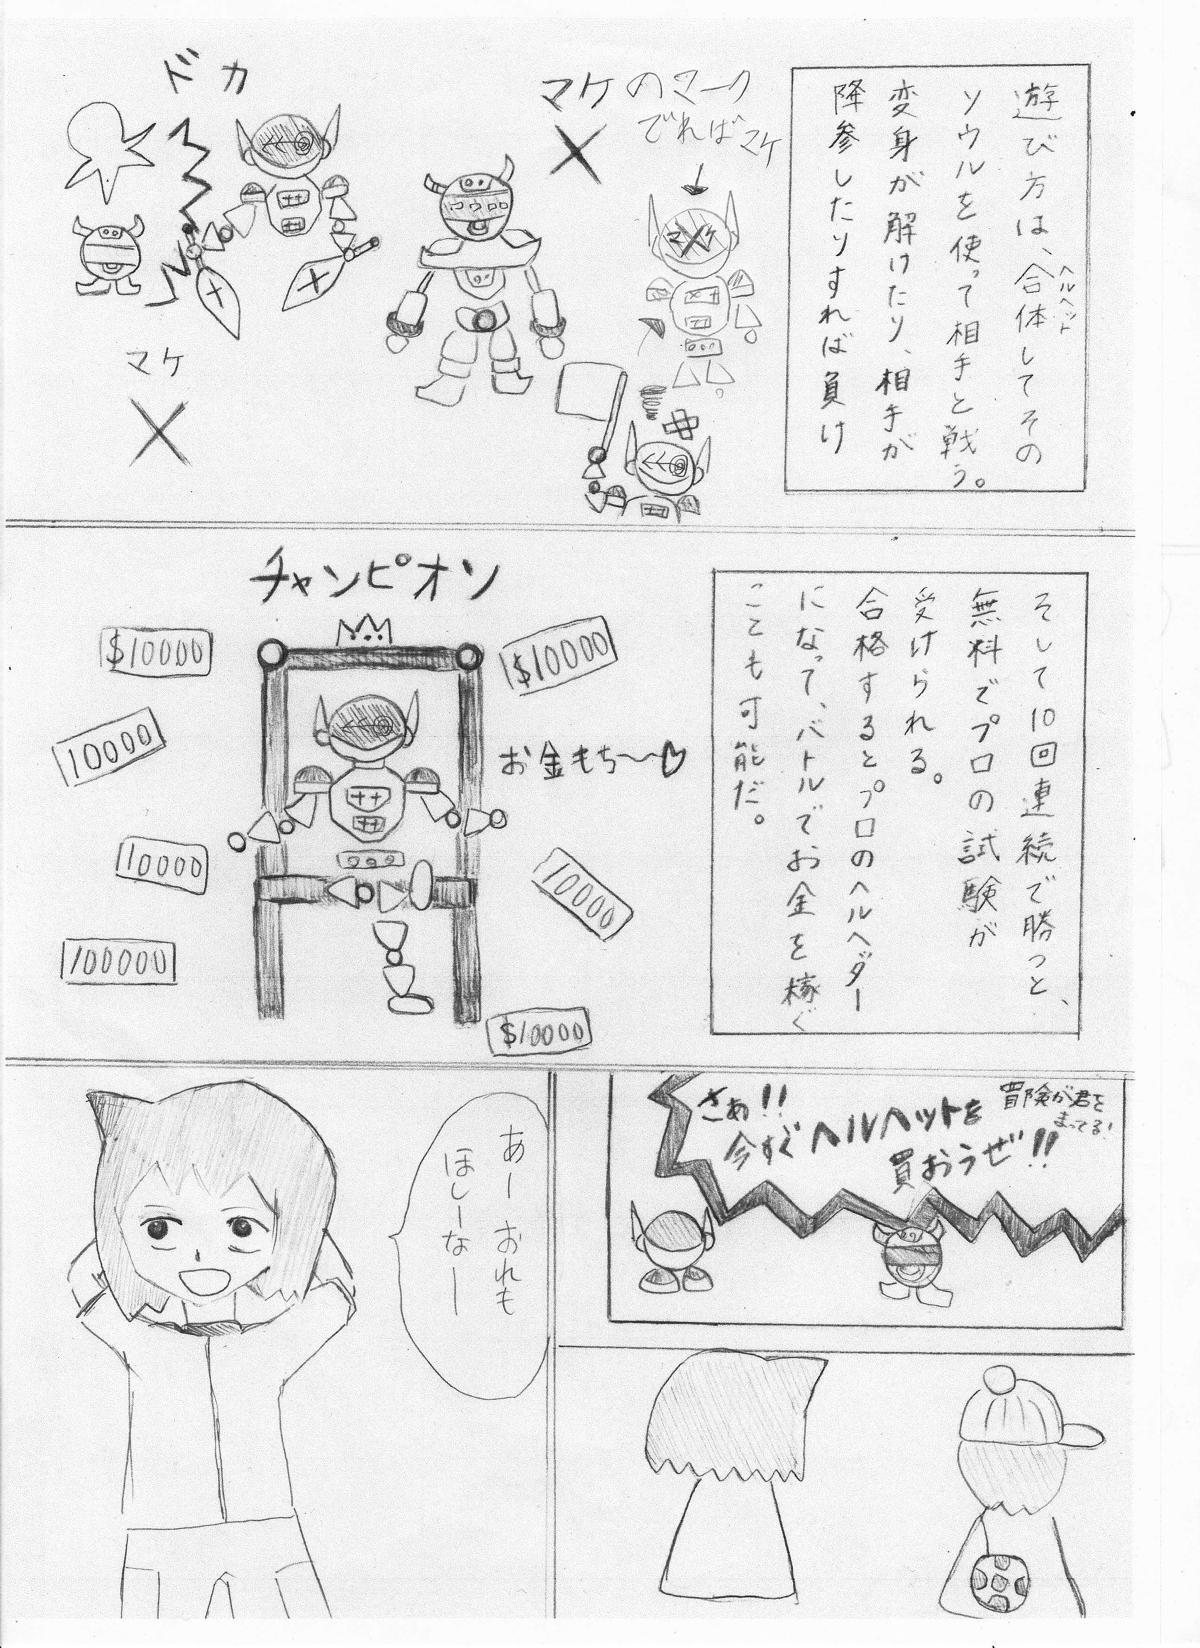 遊び方は、合体してその
ヘルヘット
ソウルを使って相手と戦う。
変身が解けたり、相手が
降参したりすれば負け
マケのマーク
でればマケ
マケ
コウロロ
ドカ
マケ
そして10回連続で勝つと、
無料でプロの試験が
受けられる。
合格するとプロのヘルヘダー
になって、バトルでお金を稼ぐ
ことも可能だ。
チャンピオン
$10000
$10000
10000
お金もち〜〜♡
10000
10000
100000
$10000
さあ!!
今すぐヘルヘットを
買おうぜ!!
冒険が君を
まってる!
あー おれも
ほしーなー